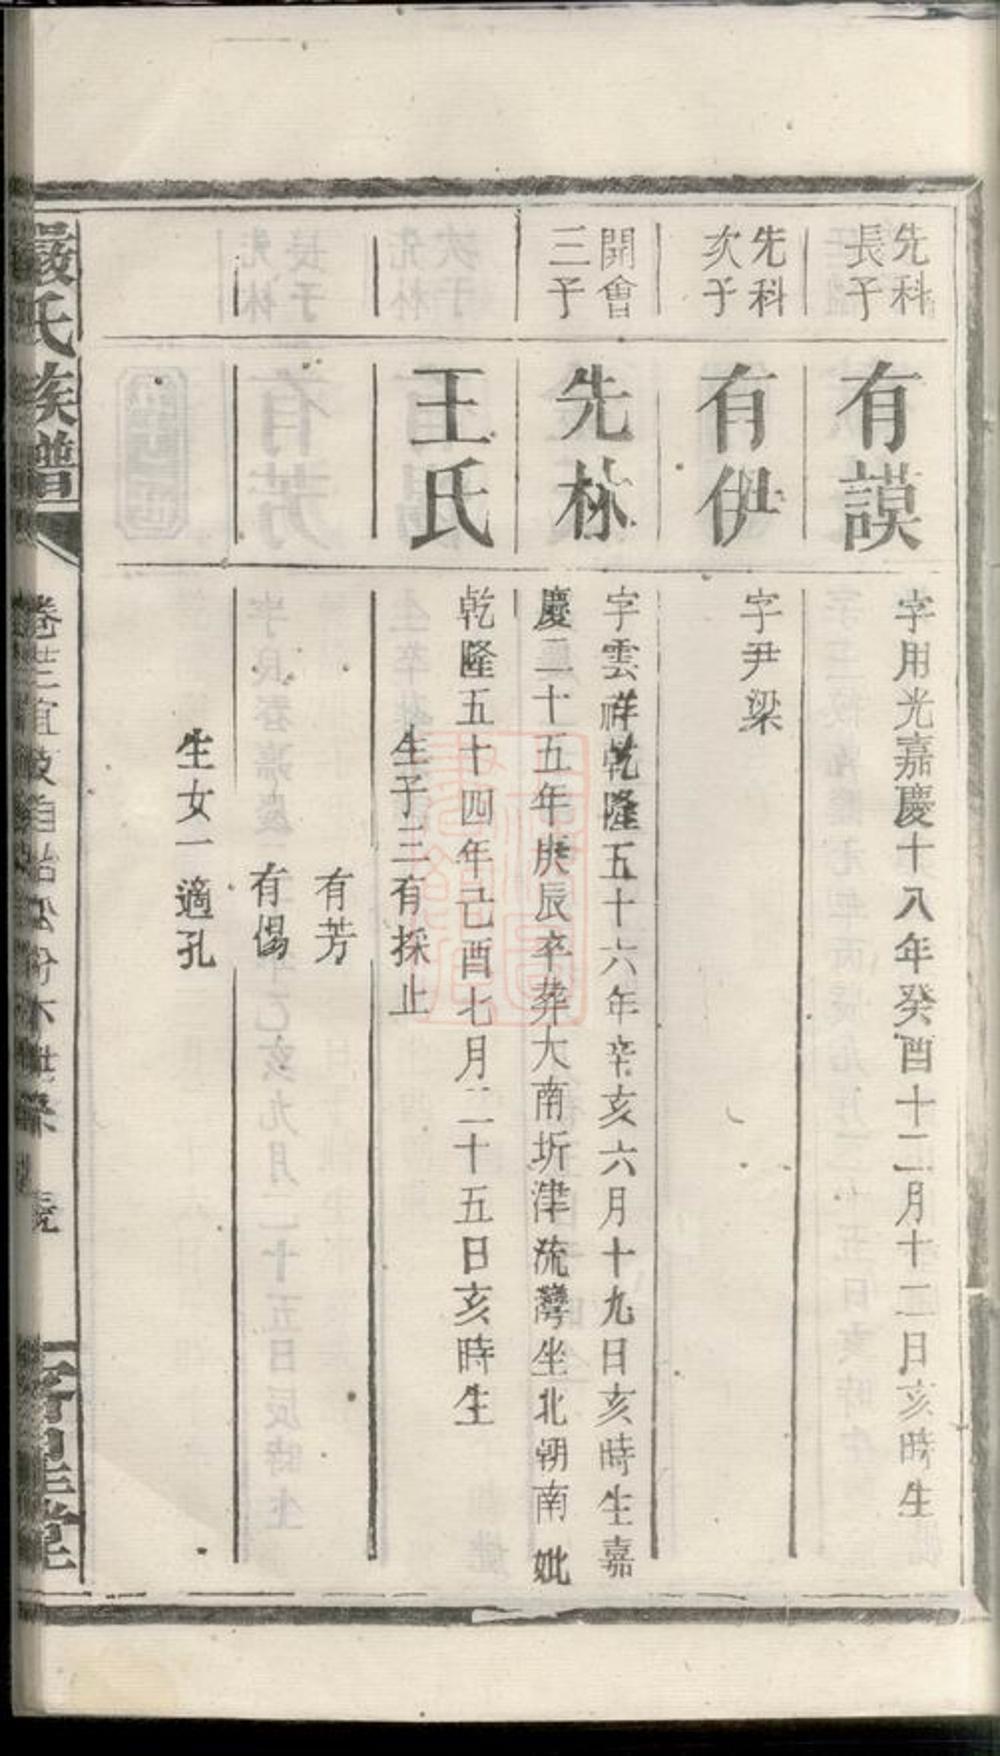 先科
長子
有謨
字用光嘉慶十八年癸酉十二月十二日亥時生
先科
次子
有伊
字尹梁
開會
三子
先林
字雲祥乾隆五十六年辛亥六月十九日亥時生嘉
慶二十五年庚辰卒葬大南圻津流灣坐北朝南 妣
王氏
乾隆五十四年己酉七月二十五日亥時生
生子三有採止
有芳
有傷
生女一適孔
嚴氏族譜